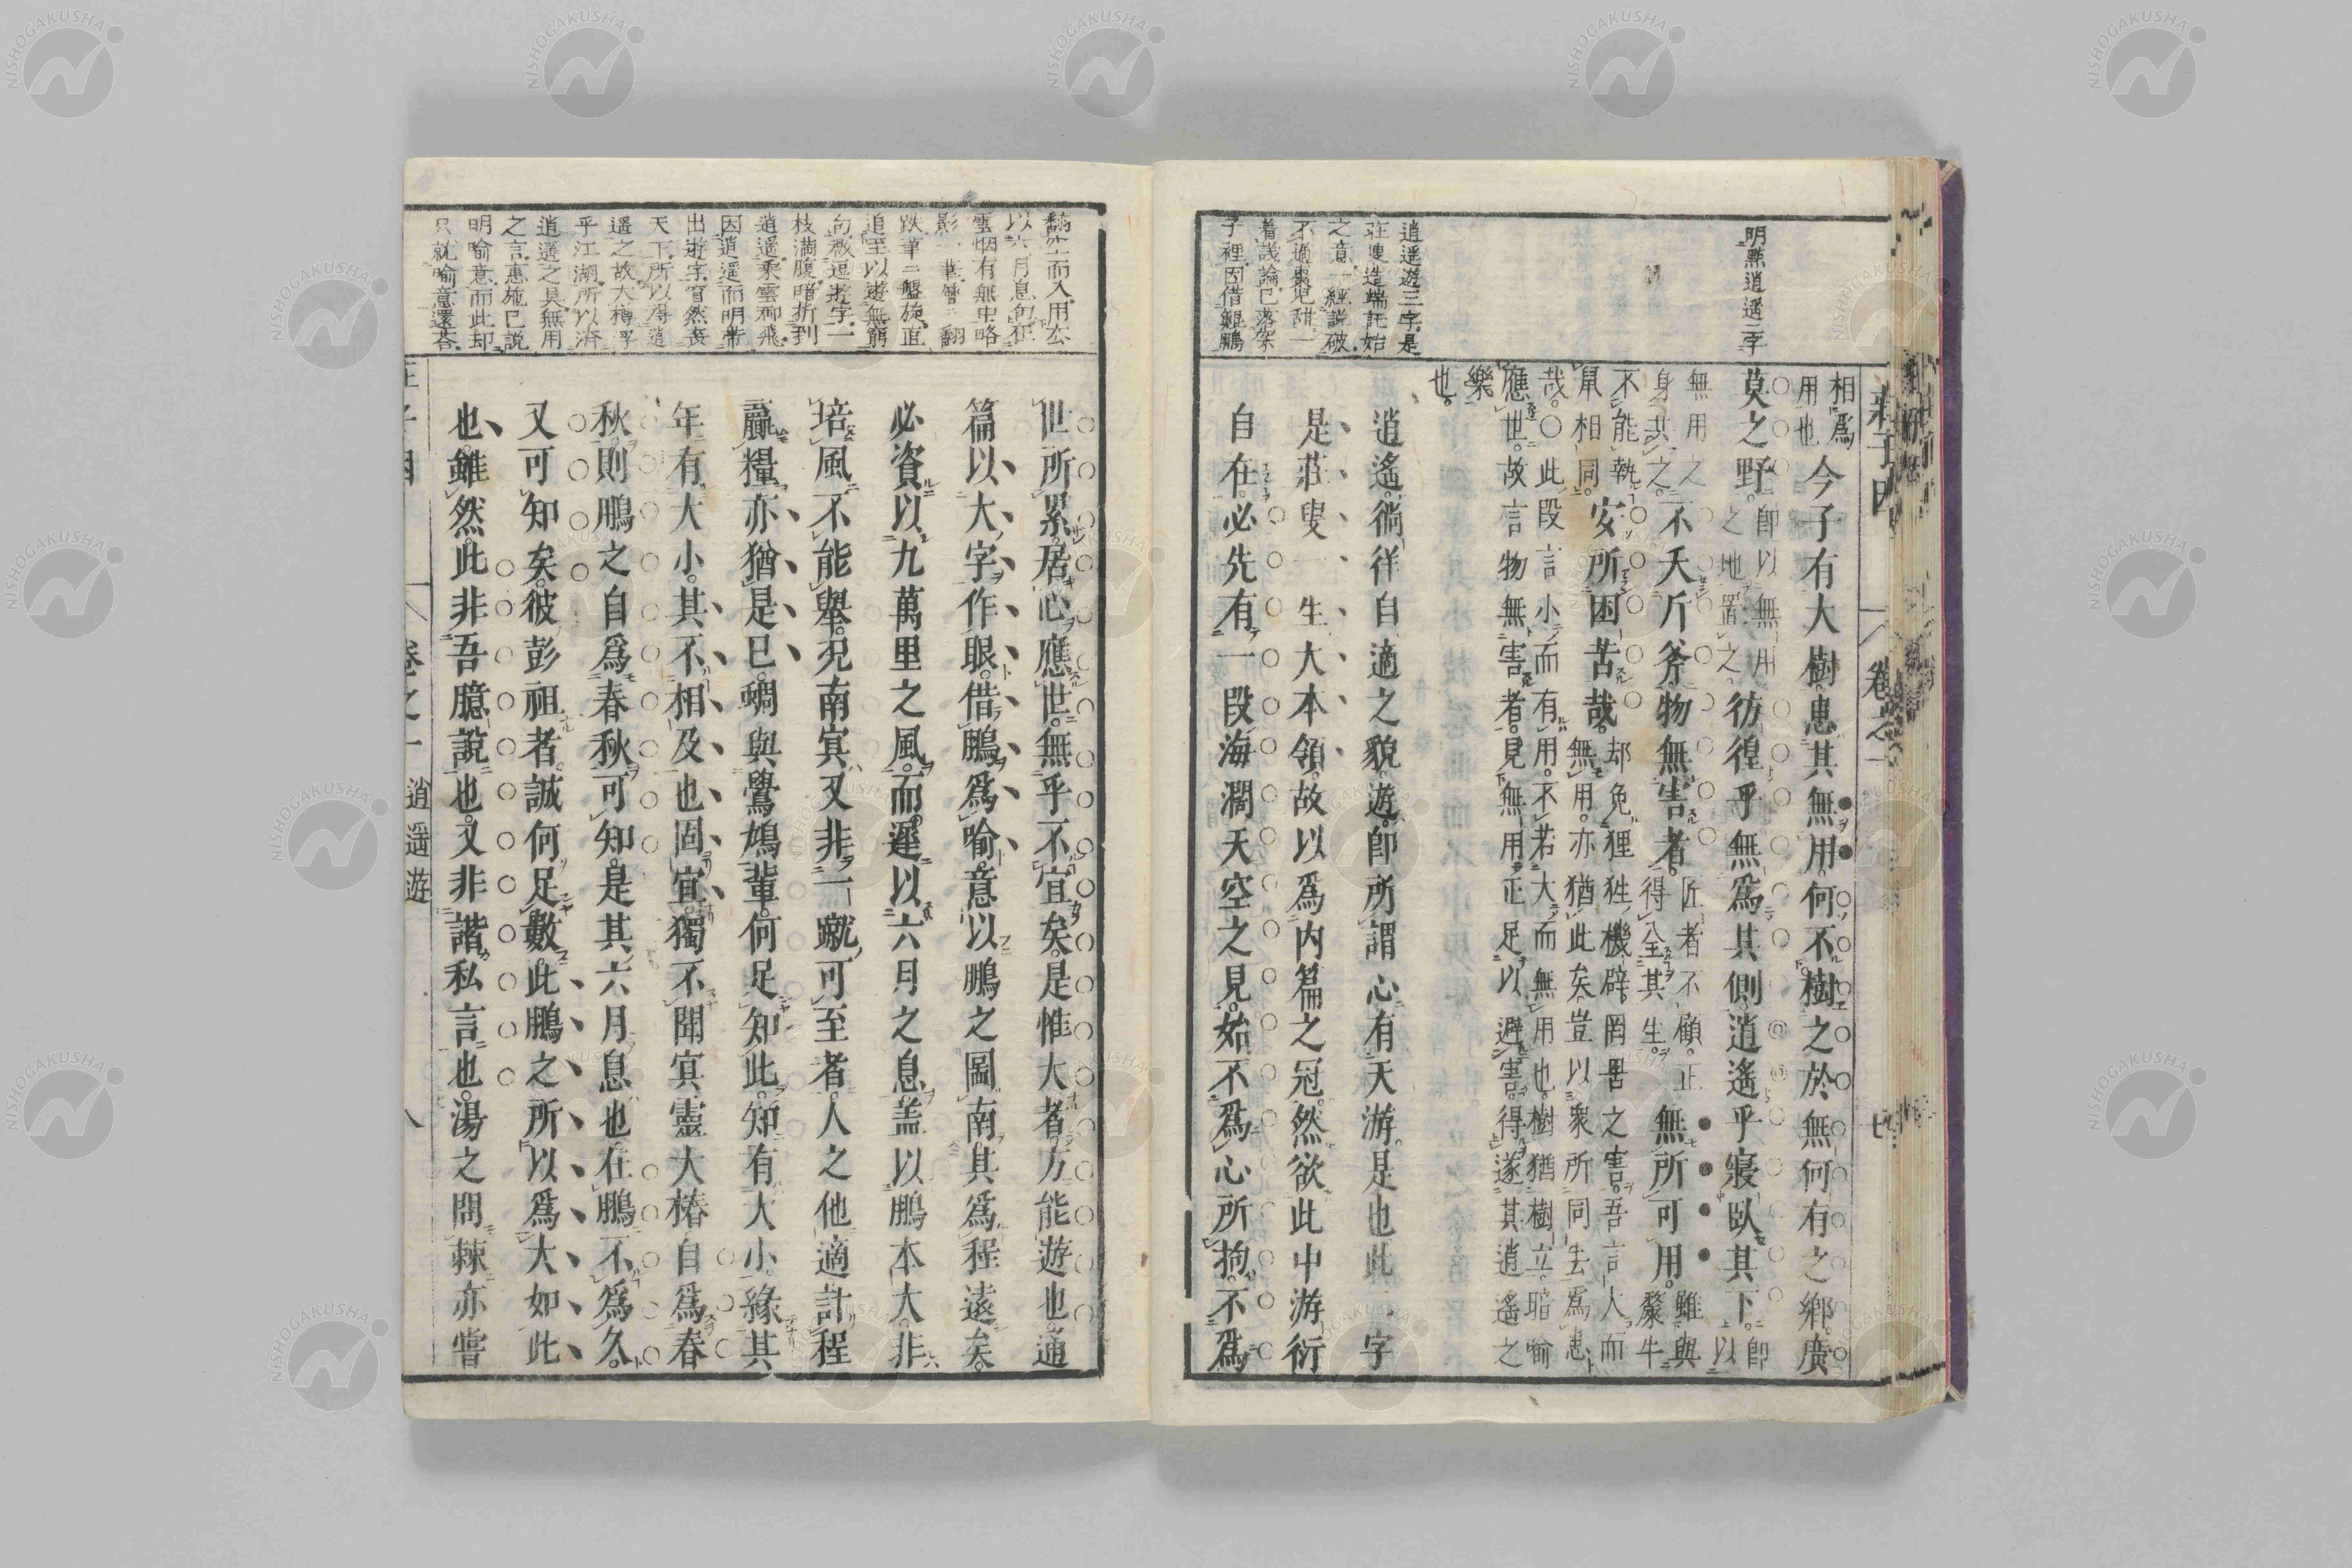 莊子因
卷之一
七
明點逍遥二字
相爲
用也
今子有大樹患其無用何不樹之於無何有之鄉廣
莫之野
即以無用
之地置之
彷徨乎無爲其側逍遙乎寢臥其下
即
以
無用之
身共之
不夭斤斧物無害者
匠者不顧正
得全其生
無所可用
雖與
斄牛
不能執
鼠相同
安所困苦哉
却免狸狌機辟罔罟之害吾言人而
無用亦猶此矣豈以衆所同去爲患
哉〇此段言小而有用不若大而無用也樹猶樹立暗喻
應世故言物無害者見無用正足以避害得遂其逍遥之
樂
也
逍遥遊三字是
莊叟造端託始
之意一經説破
不過棗兒甜一
着議論已落架
子裡因借鯤鵬
逍遙徜徉自適之貌遊即所謂心有天游是也此二字
是莊叟一生大本領故以爲内篇之冠然欲此中游衍
自在必先有一段海濶天空之見始不爲心所拘不爲
翻空而入用去
以六月息句在
雲烟有無中略
影一筆層二翻
跌筆二盤旋直
追至以遊無窮
句敲逗遊字一
枝滿腹暗折到
逍遥乘雲御飛
因逍遥而明帶
出遊字窅然喪
天下所以得逍
遥之故大樽浮
乎江湖所以濟
逍遥之具無用
之言惠施已説
明喻意而此却
只就喻意還荅
世所累居心應世無乎不宜矣是惟大者方能遊也通
篇以大字作眼借鵬爲喻意以鵬之圖南其爲程遠矣
必資以九萬里之風而遲以六月之息盖以鵬本大非
培風不能舉况南冥又非一蹴可至者人之他適計程
贏糧亦猶是已蜩與鷽鳩輩何足知此知有大小緣其
年有大小其不相及也固宜獨不聞冥靈大椿自爲春
秋則鵬之自爲春秋可知是其六月息也在鵬不爲久
又可知矣彼彭祖者誠何足數此鵬之所以爲大如此
也雖然此非吾臆説也又非諧私言也湯之問棘亦嘗
莊子因
卷之一
逍遥遊
八